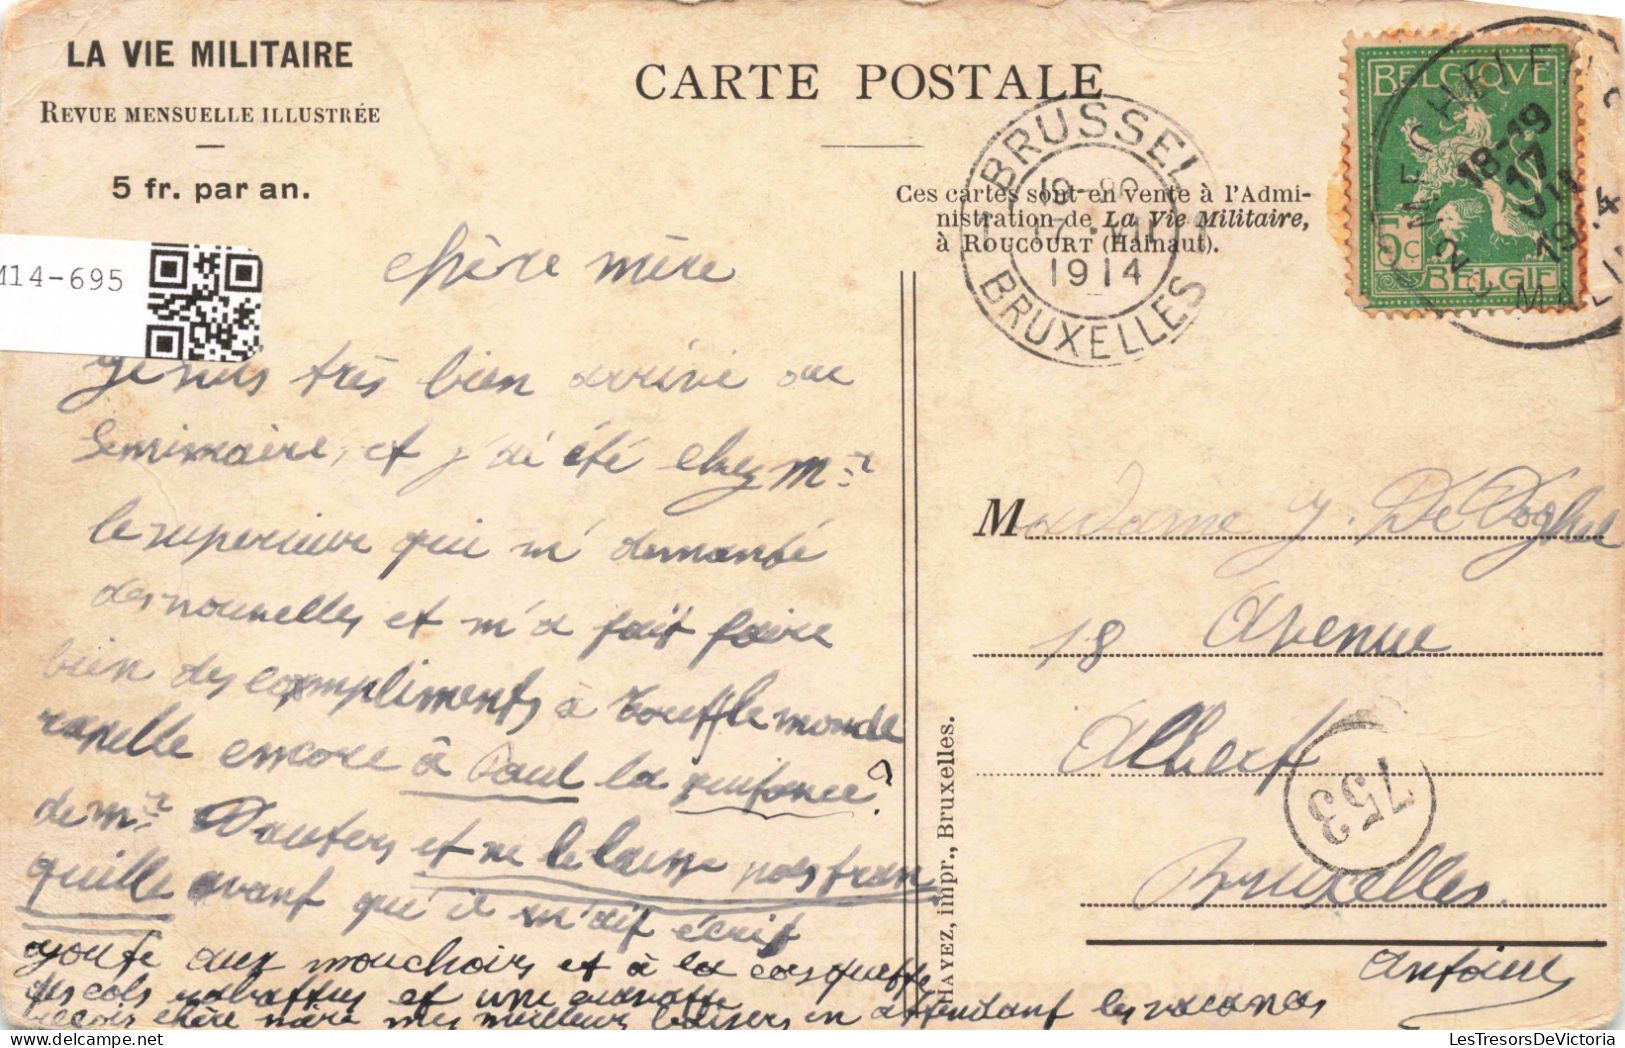 LA VIE MILITAIRE
REVUE MENSUELLE ILLUSTRÉE
5 fr. par an.
M14-695
CARTE POSTALE
Ces cartes sont en vente à l'Admi-
nistration de La Vie Militaire,
à ROUCOURT (Hainaut).
BRUSSEL
1914
BRUXELLES
BELGIQUE
5c
BELGIE
MECHELEN
18-19
17
VII
19 4
2
MALIN
chère mère
Je suis très bien arrivé au
Seminaire, et j'ai été chez Mr
le superieur qui m'demandé
des nouvelles et m'a fait faire
bien des compliments à toutle monde
rapelle encore à Paul la quitance?
de mr Wauters et ne le laisse pas tran
quille avant qu'il m'ait écrit
ajoute aux mouchoirs et à la casquette
des cols rabattus et une cravatte
Reçois chère mère mes meilleurs baisers en attendant les vacances
Antoine
Madame J. De Doghel
18 Avenue
Albert
753
Bruxelles.
HAYEZ, impr., Bruxelles.
LesTresorsDeVictoria.com